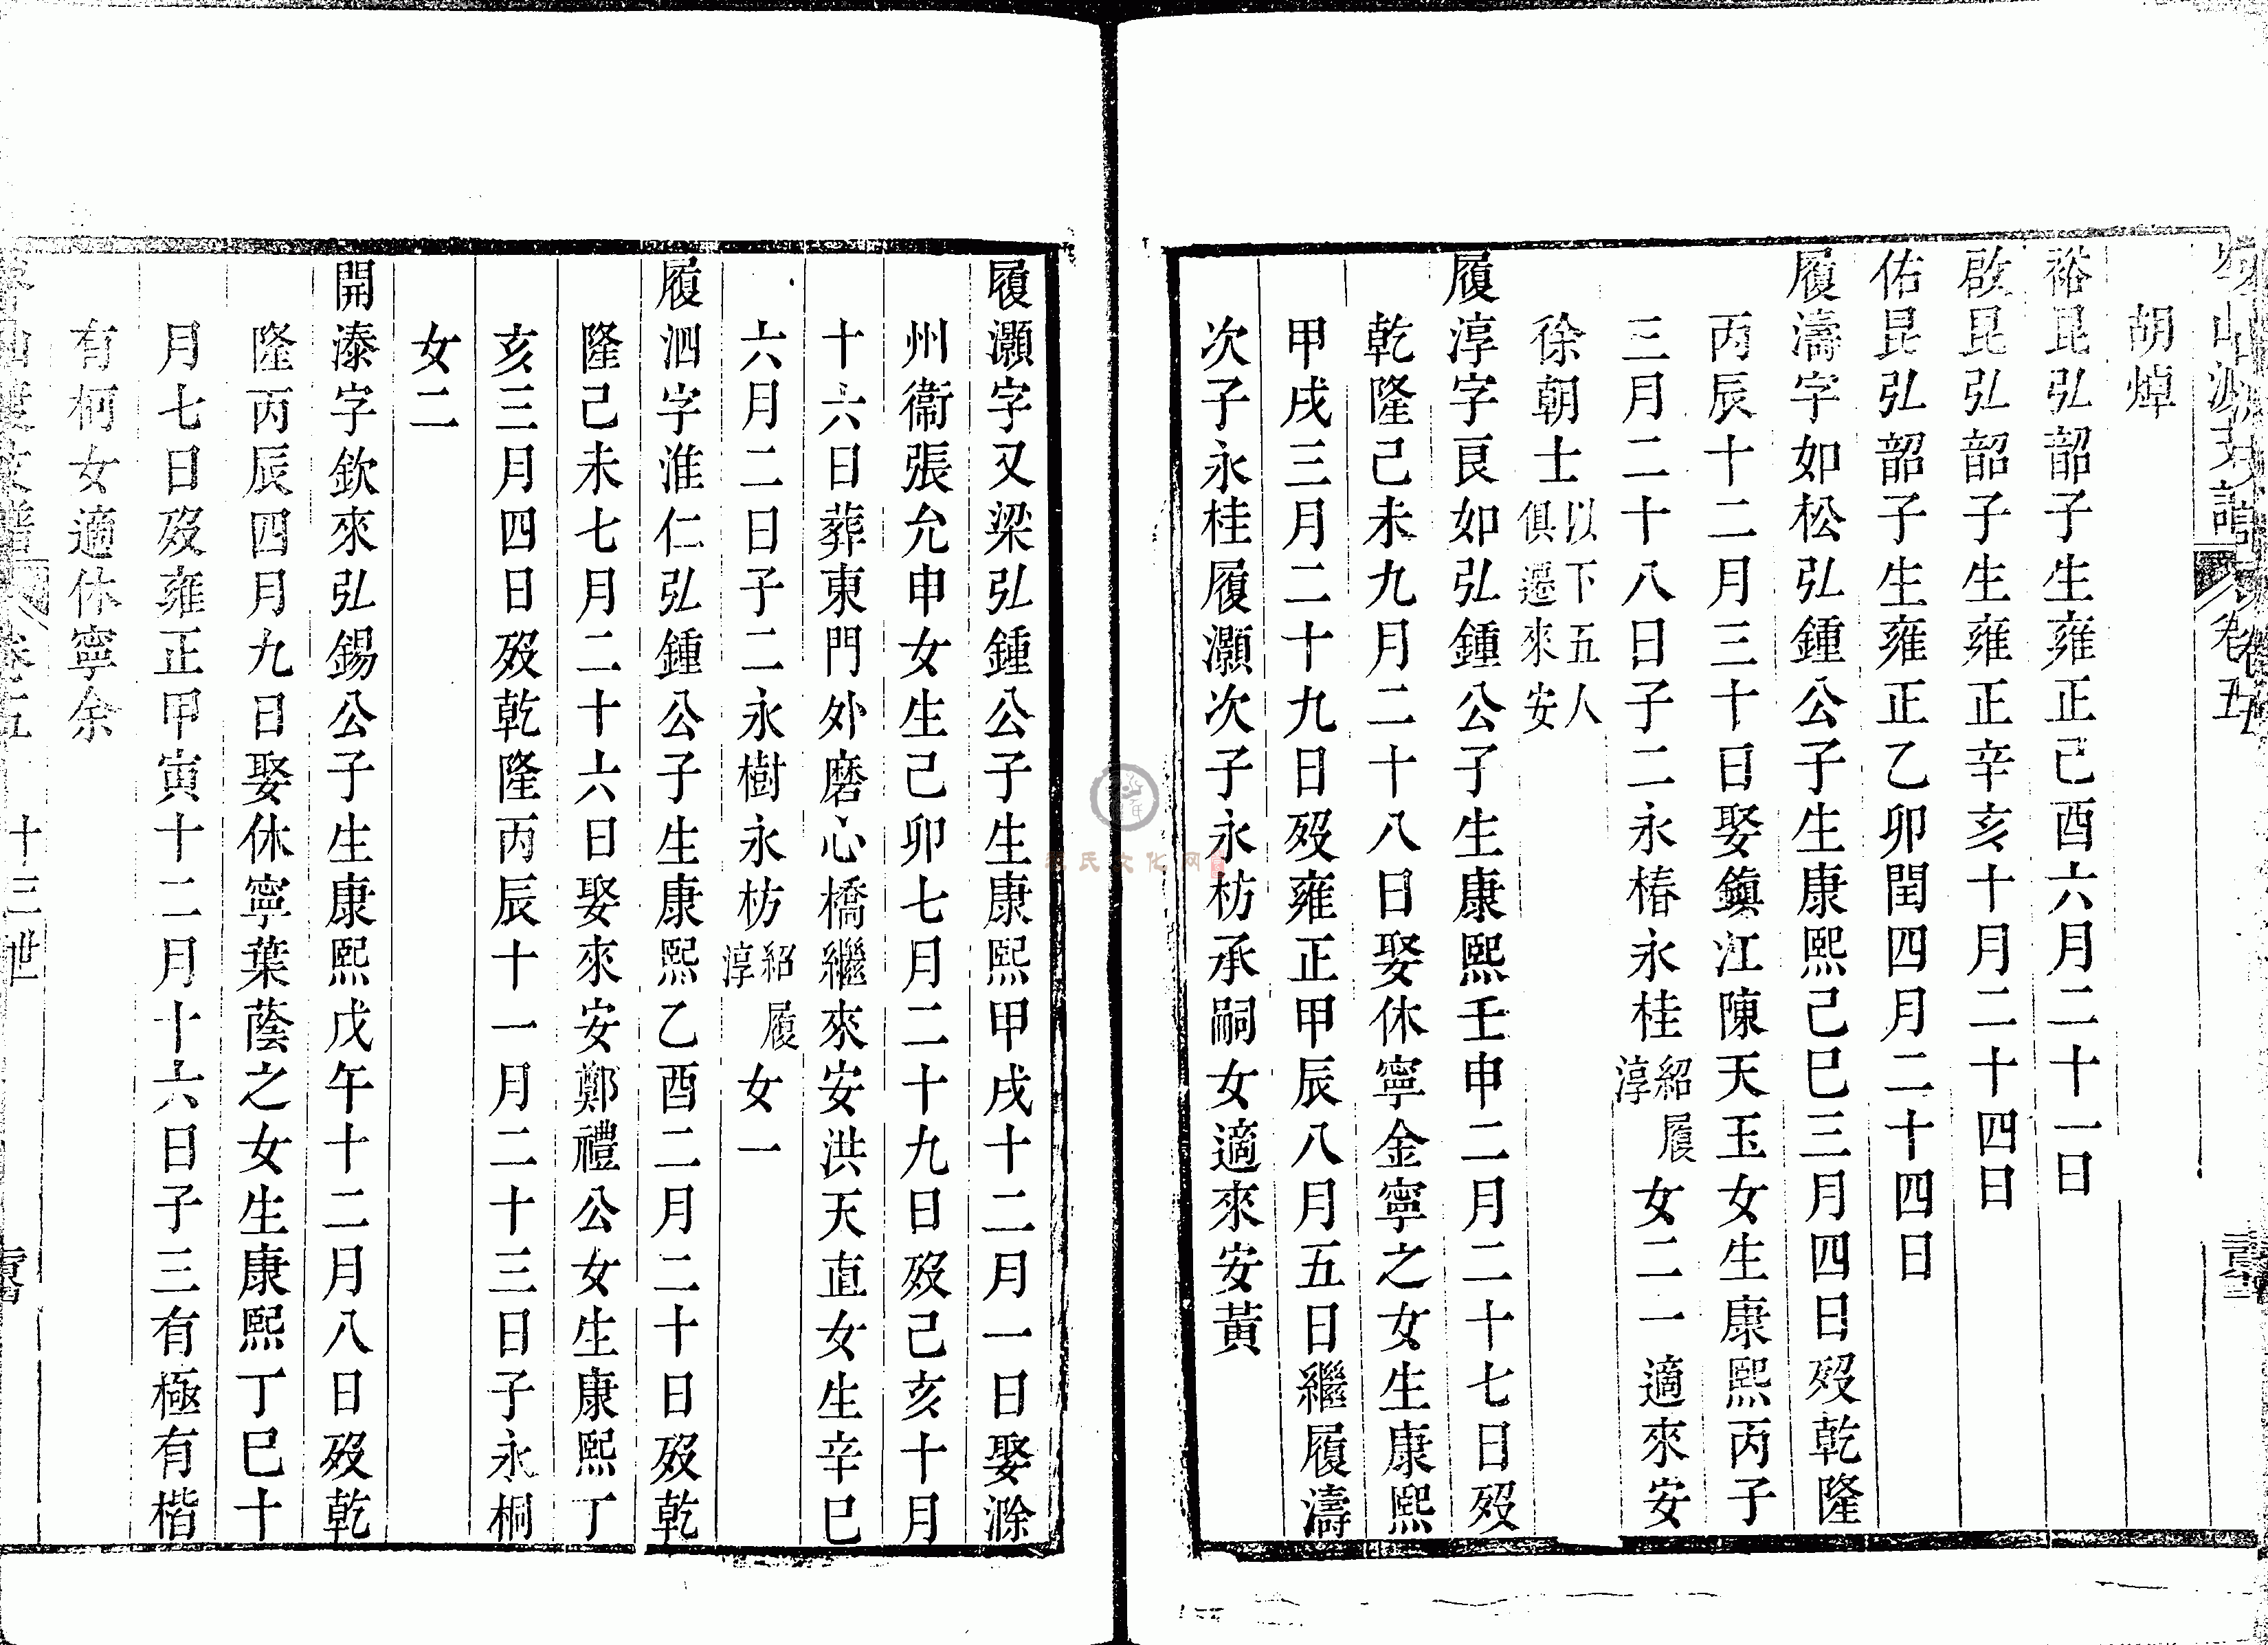 支譜 卷五
胡焯
裕昆弘韶子生雍正己酉六月二十一日
啟昆弘韶子生雍正辛亥十月二十四日
佑昆弘韶子生雍正乙卯閏四月二十四日
履濤字如松弘鍾公子生康熙己巳三月四日歿乾隆
丙辰十二月三十日娶鎮江陳天玉女生康熙丙子
三月二十八日子二永椿永桂紹履淳女二一適來安
徐朝士以下五人俱遷來安
履淳字艮如弘鍾公子生康熙壬申二月二十七日歿
乾隆己未九月二十八日娶休寧金寧之女生康熙
甲戌三月二十九日歿雍正甲辰八月五日繼履濤
次子永桂履灝次子永枋承嗣女適來安黃
履灝字又梁弘鍾公子生康熙甲戌十二月一日娶滁
州衞張允申女生己卯七月二十九日歿己亥十月
十六日葬東門外磨心橋繼來安洪天直女生辛巳
六月二日子二永樹永枋紹履淳女一
履泗字淮仁弘鍾公子生康熙乙酉二月二十日歿乾
隆己未七月二十六日娶來安鄭禮公女生康熙丁
亥三月四日歿乾隆丙辰十一月二十三日子永桐
女二
開溱字欽來弘錫公子生康熙戊午十二月八日歿乾
隆丙辰四月九日娶休寧葉蔭之女生康熙丁巳十
月七日歿雍正甲寅十二月十六日子三有極有楷
有柯女適休寧余
支譜 卷五 十三世
范氏文化网